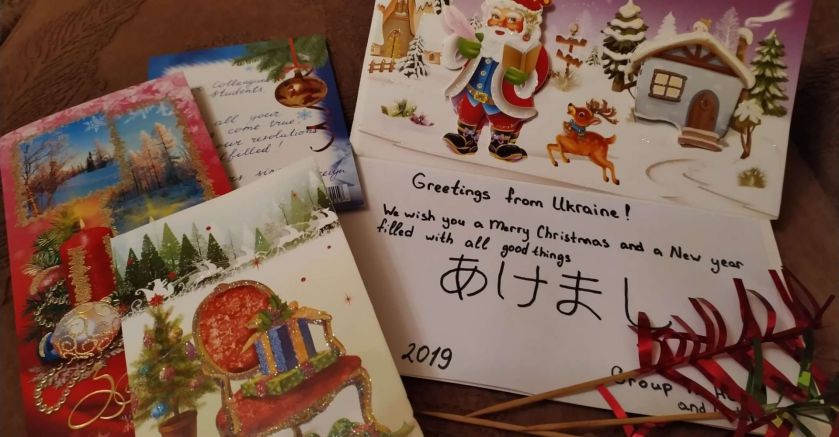 Colleagues
Students,
all your
come true.
our resolutions
Greetings from Ukraine!
We wish you a Merry Christmas and a New year
filled with all good things
あけまし
2019
Group
and